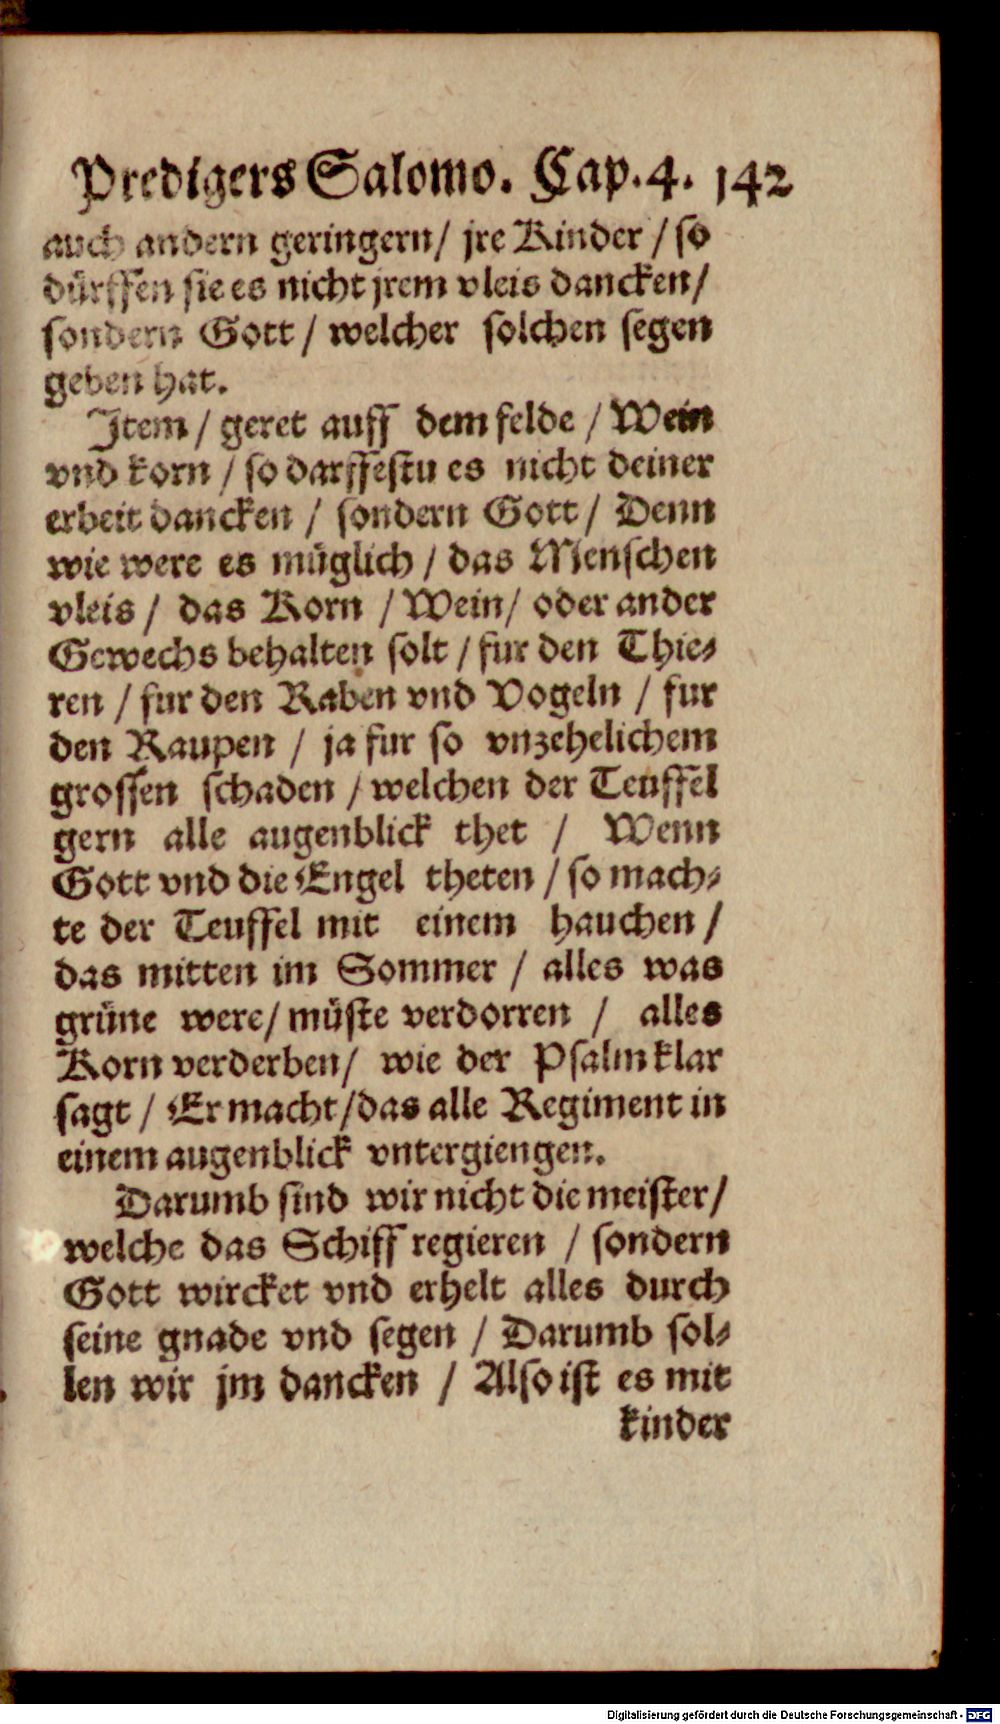 Predigers Salomo. Cap. 4. 142
auch andern geringern/ jre Kinder / so
dürffen sie es nicht jrem vleis dancken/
sondern Gott / welcher solchen segen
geben hat.
Item / geret auff dem felde / Wein
vnd korn / so darffestu es nicht deiner
erbeit dancken / sondern Gott / Denn
wie were es müglich / das Menschen
vleis / das Korn / Wein/ oder ander
Gewechs behalten solt / fur den Thie-
ren / fur den Raben vnd Vogeln / fur
den Raupen / ja fur so vnzehelichem
grossen schaden / welchen der Teuffel
gern alle augenblick thet / Wenn
Gott vnd die Engel theten / so mach-
te der Teuffel mit einem hauchen /
das mitten im Sommer / alles was
grüne were/ müste verdorren / alles
Korn verderben/ wie der Psalm klar
sagt / Er macht/das alle Regiment in
einem augenblick vntergiengen.
Darumb sind wir nicht die meister/
welche das Schiff regieren / sondern
Gott wircket vnd erhelt alles durch
seine gnade vnd segen / Darumb sol-
len wir jm dancken / Also ist es mit
kinder
Digitalisierung gefördert durch die Deutsche Forschungsgemeinschaft - DFG